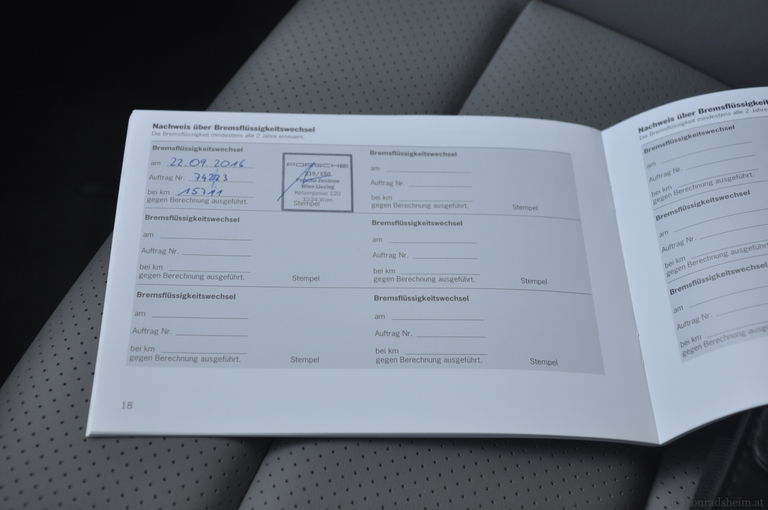 Nachweis über Bremsflüssigkeitswechsel
Die Bremsflüssigkeit mindestens alle 2 Jahre erneuern.
Bremsflüssigkeitswechsel
am 22.09.2016
Auftrag Nr.
bei km 15711
gegen Berechnung ausgeführt.
PORSCHE
Porsche Zentrum
Wien-Liesing
1234 Wien
Stempel
Bremsflüssigkeitswechsel
am
Auftrag Nr.
bei km
gegen Berechnung ausgeführt.
Stempel
Bremsflüssigkeitswechsel
am
Auftrag Nr.
bei km
gegen Berechnung ausgeführt.
Stempel
Bremsflüssigkeitswechsel
am
Auftrag Nr.
bei km
gegen Berechnung ausgeführt.
Stempel
Bremsflüssigkeitswechsel
am
Auftrag Nr.
bei km
gegen Berechnung ausgeführt.
Stempel
Bremsflüssigkeitswechsel
am
Auftrag Nr.
bei km
gegen Berechnung ausgeführt.
Stempel
18
Nachweis über Bremsflüssigkeit
Die Bremsflüssigkeit mindestens alle 2 Jahre
Bremsflüssigkeitswechsel
am
Auftrag Nr.
bei km
gegen Berechnung ausgeführt.
Bremsflüssigkeitswechsel
am
Auftrag Nr.
bei km
gegen Berechnung ausgeführt.
Bremsflüssigkeitswechsel
am
Auftrag Nr.
bei km
gegen Berechnung ausgeführt.
onradsheim.at